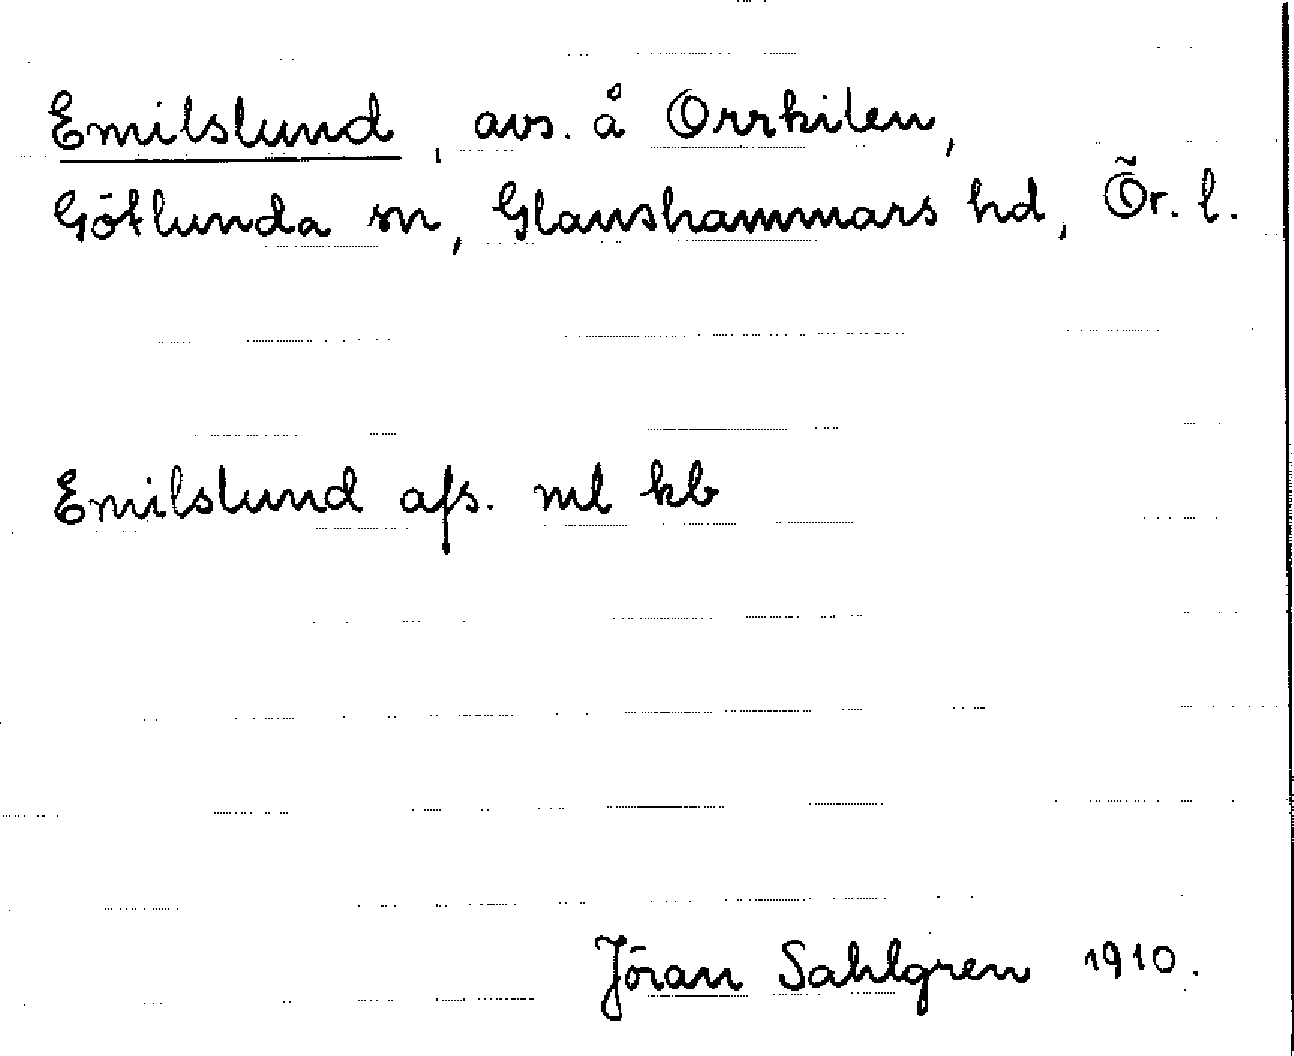 Emilslund, avs. å Orrkilen,
Götlunda sn, Glanshammars hd, Ör. l.
Emilslund afs. ml kb
Jöran Sahlgren 1910.